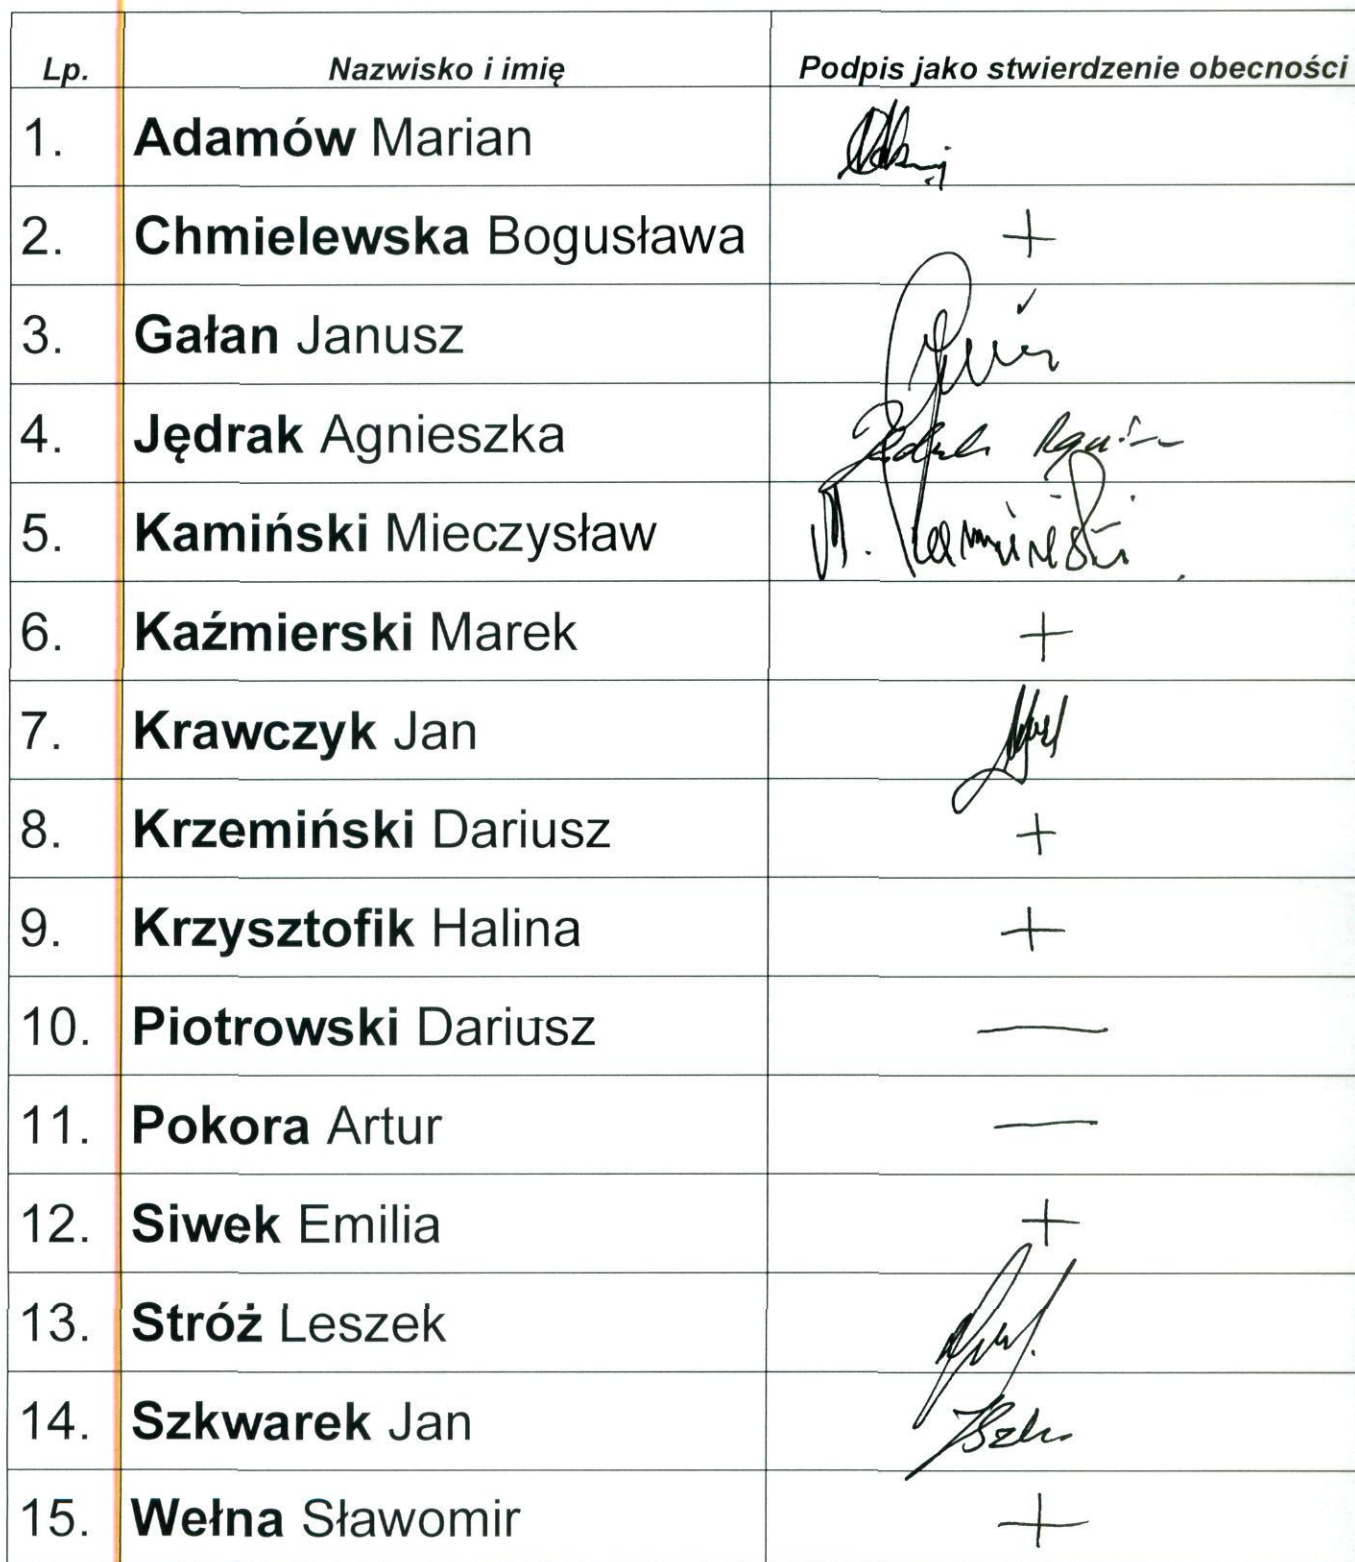 Lp. Nazwisko i imię Podpis jako stwierdzenie obecności
1. Adamów Marian
2. Chmielewska Bogusława +
3. Gałan Janusz
4. Jędrak Agnieszka
5. Kamiński Mieczysław M. Kamiński
6. Kaźmierski Marek +
7. Krawczyk Jan
8. Krzemiński Dariusz +
9. Krzysztofik Halina +
10. Piotrowski Dariusz —
11. Pokora Artur —
12. Siwek Emilia +
13. Stróż Leszek
14. Szkwarek Jan
15. Wełna Sławomir +